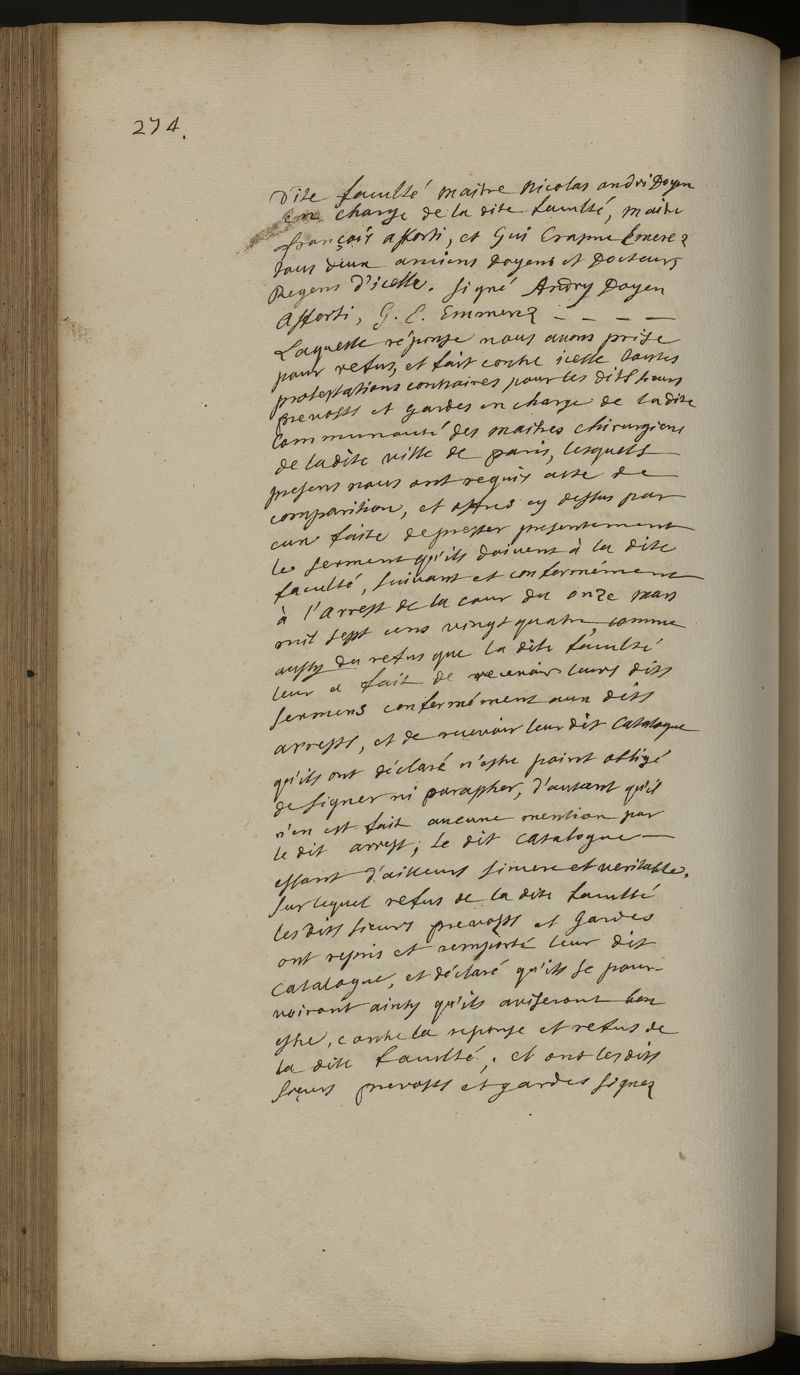 274.
dite faculté maitre Nicolas andri Doyen
en charge de la dite faculté, maitre
françois afforti, et Gui Erasme Emerez
tous deux anciens doyens et Docteurs
Regens d'icelle. Signé Andry Doyen
Afforti, G. E. Emmerez - - - -
Laquelle réponse nous avons prise
pour refus, et fait contre icelle toutes
protestations contraires pour les dits sieurs
prevosts et gardes en charge de la dite
Communauté des maitres chirurgiens
de la dite ville de paris, lesquels
presens nous ont requis acte de
comparition, et offres cy dessus par
eux faite de prester presentement
le serment qu'ils doivent à la dite
faculté, suivant et conformément
à l'arrest de la cour du onze mars
mil sept cens vingt quatre, comme
aussy du refus que la dite faculté
leur a fait de recevoir leurs dits
sermens conformément aux dits
arrests, et de recevoir leur dit catalogue
qu'ils ont déclaré n'estre point obligé
de signer ni parapher, d'autant qu'il
n'en est fait aucune mention par
le dit arrest; le dit catalogue
estant d'ailleurs sincere et veritable.
Sur lequel refus de la dite faculté
les dits sieurs prevosts et gardes
ont repris et remporté leur dit
catalogue, et déclaré qu'ils se pour-
voiront ainsy qu'ils aviseront bon
estre, contre la reponse et refus de
la dite faculté, et ont les dits
sieurs prevosts et gardes signez